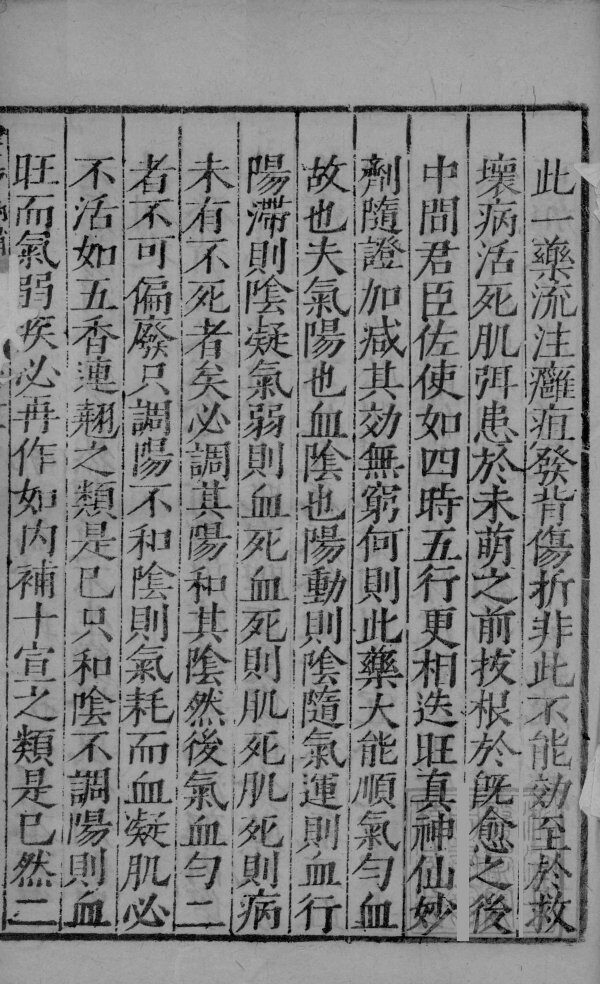 此一藥流注癰疽發背傷折非此不能効至於救
壞病活死肌弭患於未萌之前拔根於旣愈之後
中間君臣佐使如四時五行更相迭旺真神仙妙
劑隨證加减其効無窮何則此藥大能順氣勻血
故也夫氣陽也血陰也陽動則陰隨氣運則血行
陽滯則陰凝氣弱則血死血死則肌死肌死則病
未有不死者矣必調其陽和其陰然後氣血勻二
者不可偏廢只調陽不和陰則氣耗而血凝肌必
不活如五香連翹之類是已只和陰不調陽則血
旺而氣弱疾必再作如内補十宣之類是已然二